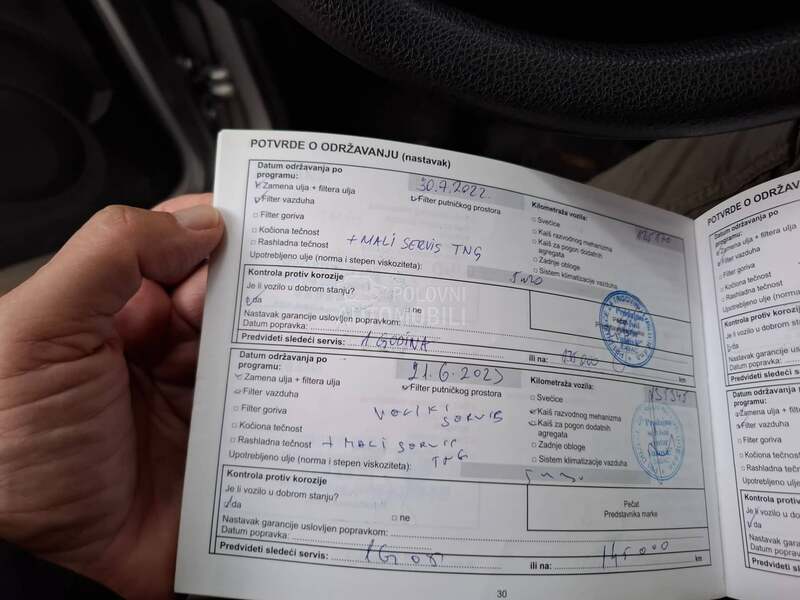 POTVRDE O ODRŽAVANJU (nastavak)
Datum održavanja po programu:
30.9.2022
Kilometraža vozila:
Zamena ulja + filtera ulja
Filter vazduha
Filter putničkog prostora
Svećice
Filter goriva
Kaiš razvodnog mehanizma
Kočiona tečnost
Kaiš za pogon dodatnih agregata
Rashladna tečnost
+ MALI SERVIS TNG
Zadnje obloge
Sistem klimatizacije vazduha
Upotrebljeno ulje (norma i stepen viskoziteta):
5w20
Kontrola protiv korozije
Je li vozilo u dobrom stanju?
da
ne
Nastavak garancije uslovljen popravkom:
Datum popravka:
Predvideti sledeći servis: 1 GODINA ili na: km
POLOVNI AUTOMOBILI
Datum održavanja po programu:
21.6.2023
Kilometraža vozila:
135345
Zamena ulja + filtera ulja
Filter vazduha
Filter putničkog prostora
Svećice
Filter goriva
VELIKI SERVIS
Kaiš razvodnog mehanizma
Kočiona tečnost
Kaiš za pogon dodatnih agregata
Rashladna tečnost
+ MALI SERVIS TNG
Zadnje obloge
Sistem klimatizacije vazduha
Upotrebljeno ulje (norma i stepen viskoziteta):
Kontrola protiv korozije
Je li vozilo u dobrom stanju?
da
ne
Pečat
Predstavnika marke
Nastavak garancije uslovljen popravkom:
Datum popravka:
Predvideti sledeći servis: 1 GOD ili na: 145000 km
30
POTVRDE O ODRŽAVA
Datum održavanja po programu:
Zamena ulja + filtera
Filter vazduha
Filter goriva
Kočiona tečnost
Rashladna tečnost
Upotrebljeno ulje (nor
Kontrola protiv koro
Je li vozilo u dobrom
da
Nastavak garancije
Datum popravka:
Predvideti sledeći
Datum održavanja programu:
Zamena ulja +
Filter vazduha
Filter goriva
Kočiona tečnost
Rashladna tečn
Upotrebljeno ulje
Kontrola protiv
Je li vozilo u do
da
Nastavak gara
Datum popravk
Predvideti sle